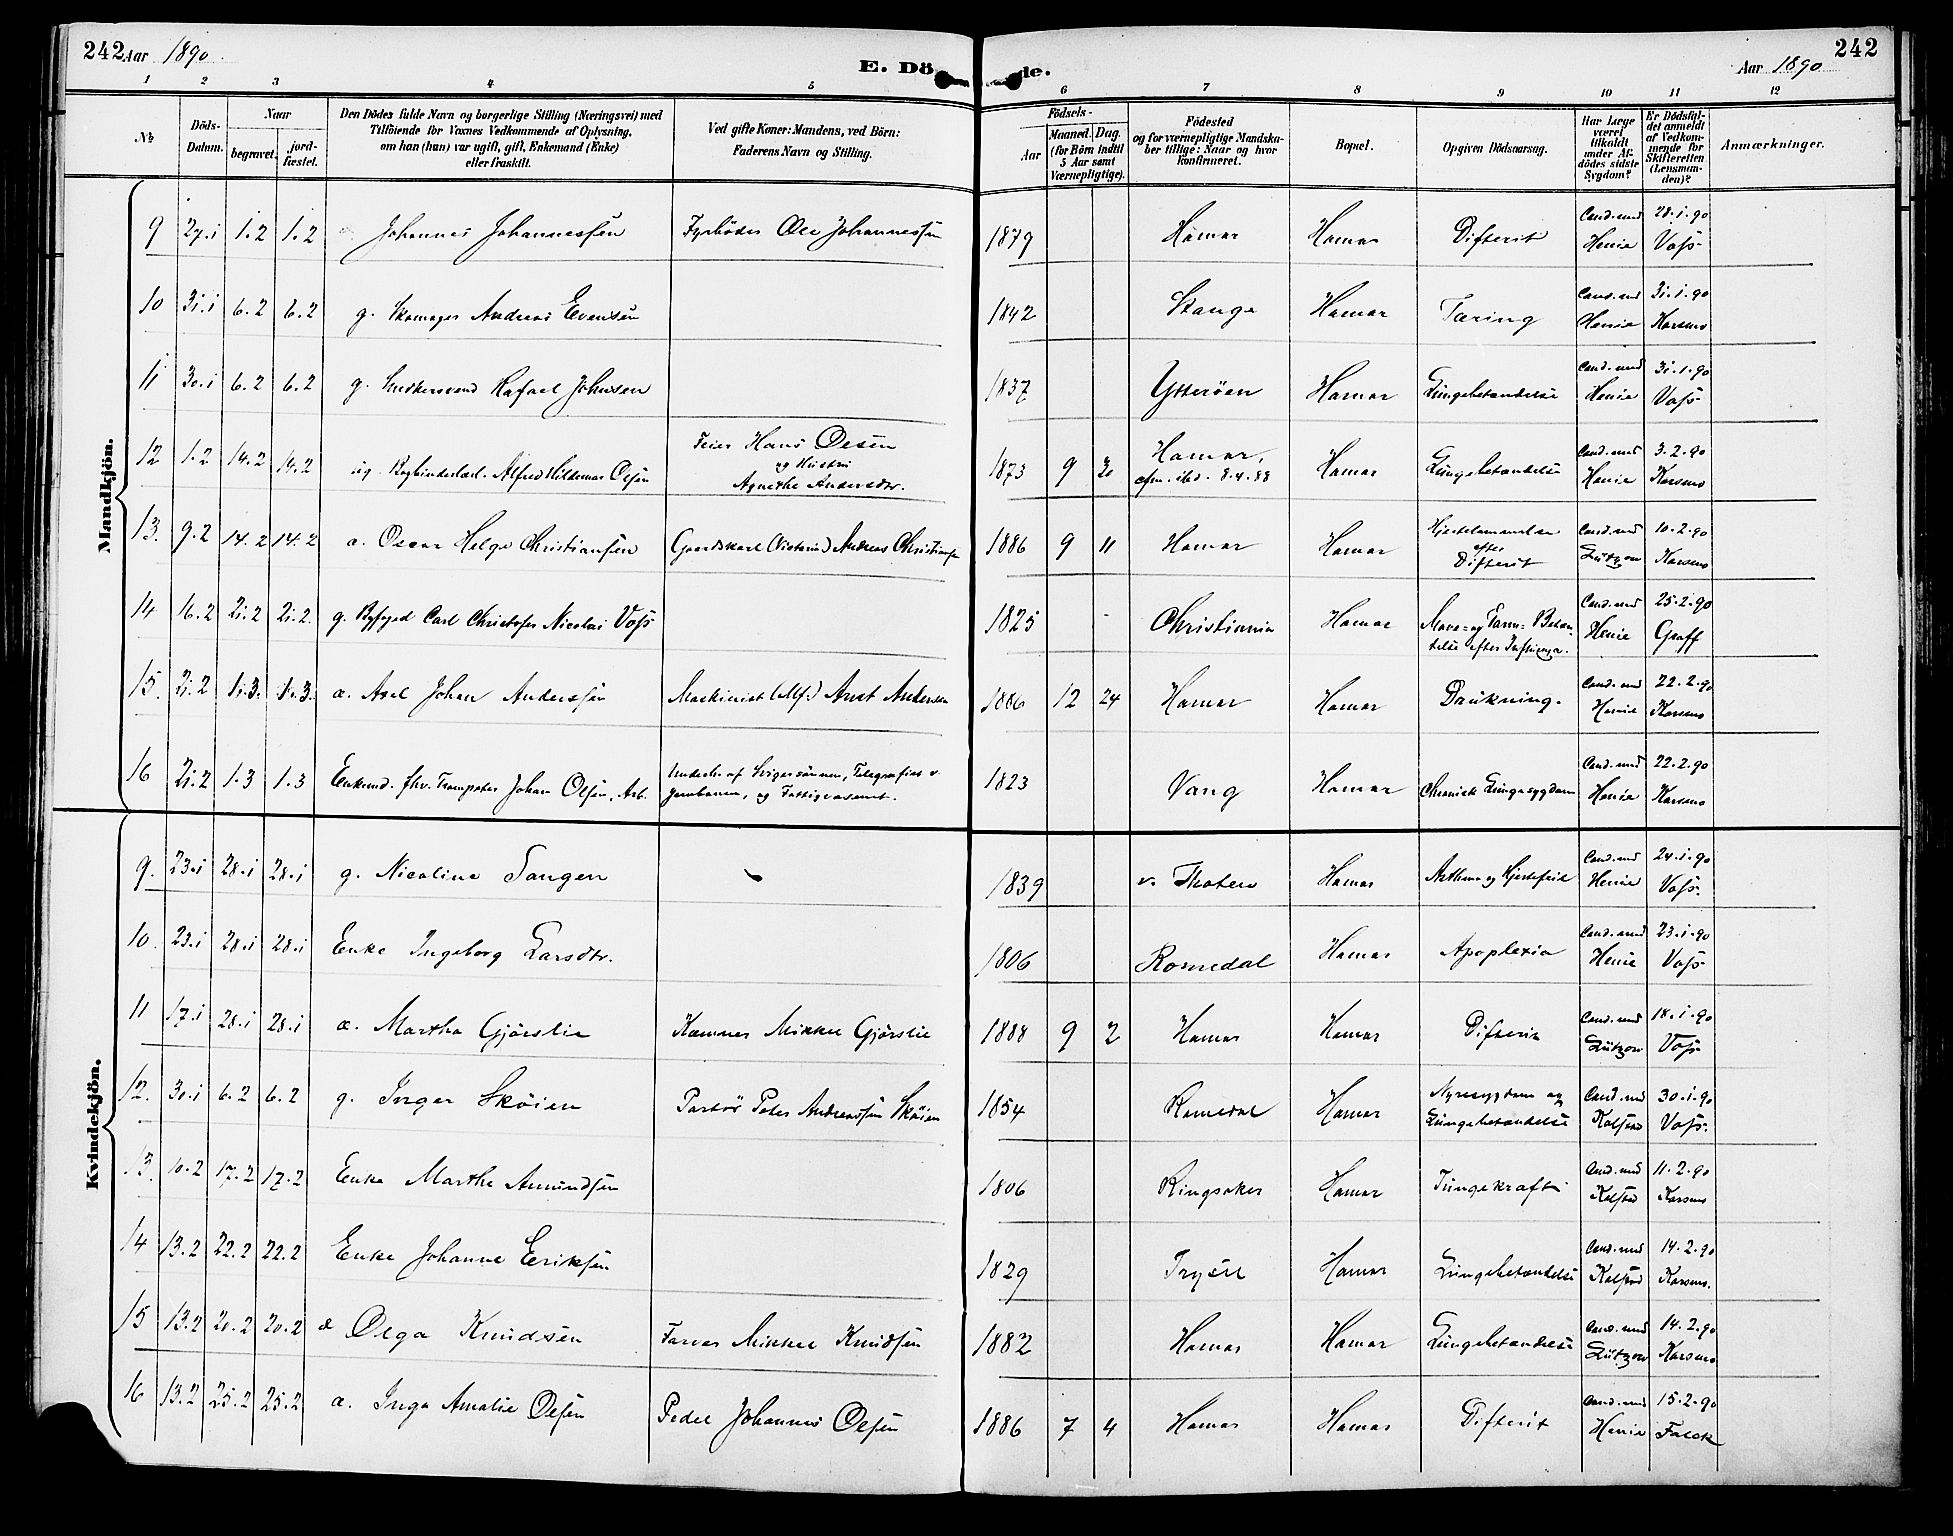 242 Aar 1890.
E. Dö de.
Aar 1890 242
1 2 3 4 5 6 7 8 9 10 11 12
No
Döds-Datum.
Naar
begravet.
jord-fæstet.
Den Dödes fulde Navn og borgerlige Stilling (Næringsvei) med
Tilföiende for Voxnes Vedkommende af Oplysning,
om han (hun) var ugift, gift, Enkemand (Enke)
eller fraskilt.
Ved gifte Koner: Mandens, ved Börn:
Faderens Navn og Stilling.
Födsels-
Aar
Maaned. Dag.
(for Börn indtil
5 Aar samt
Værnepligtige).
Födested
og for værnepligtige Mandska-
ber tillige: Naar og hvor
konfirmeret.
Bopæl.
Opgiven Dödsaarsag.
Har Læge
været
tilkaldt
under Af-
dödes sidste
Sygdom?
Er Dödsfal-
det anmeldt
af Vedkom-
mende for
Skifteretten
(Lensman-
den)?
Anmærkninger.
Mandkjön.
9 27.1 1.2 1.2 Johannes Johannessen Fyrböder Ole Johannessen 1879 Hamar Hamar Difterit Cand. med Henie 28.1.90 Voss
10 31.1 6.2 6.2 g. Skomager Andreas Evensen 1842 Stange Hamar Tæring Cand. med Henie 31.1.90 Karseno
11 30.1 6.2 6.2 g. Snedkersvend Rafael Johnsen 1837 Ytteröen Hamar Lungebetændelse Cand. med Henie 31.1.90 Voss
12 1.2 14.2 14.2 ug. Bogbinderlærl. Alfred Hildemar Olsen Feier Hans Olsen og Hustru Agnethe Andersdtr. 1873 9 30 Hamar, cfm. ibd. 8.4.88 Hamar Lungebetændelse Cand. med Henie 3.2.90 Karseno
13. 9.2 14.2 14.2 a. Oscar Helge Christiansen Gaardskarl (Victoria) Andreas Christiansen 1886 9 11 Hamar Hamar Hjertelammelse efter Difterit Cand. med Lützow 10.2.90 Karseno
14 16.2 21.2 21.2. g. Byfoged Carl Christofer Nicolai Voss 1825 Christiania Hamar Mave- og Tarm-Betændelse efter Influenza. Cand. med Henie 25.2.90 Graff
15. 21.2 1.3. 1.3. a. Axel Johan Anderssen Maskinist (Mf.) Anst Andersen 1886 12 24 Hamar Hamar Drukning. Cand. med Henie 22.2.90 Karseno
16 21.2 1.3 1.3 Enkemd. fhv. Trompeter Johan Olsen, Arb. Undech. af Svigersönnen, Telegrafist v. Jernbanen, og Fattigvæsenet. 1823 Vang Hamar Chronisk Lungesygdom Cand. med Henie 22.2.90 Karseno
Kvindekjön.
9. 23.1 28.1 28.1 g. Nicoline Tangen 1839 v. Thoten Hamar Asthma og Hjertefeil Cand. med Henie 24.1.90 Voss.
10. 23.1 28.1 28.1 Enke Ingeborg Larsdtr. 1806 Romedal Hamar Apoplexia Cand. med Henie 23.1.90 Voss
11 17.1 28.1 28.1 a. Martha Gjörslie Kæmner Mikkel Gjörslie 1888 9 2 Hamar Hamar Difterit Cand. med Lützow 18.1.90 Voss
12. 30.1 6.2 6.2 g. Inger Sköien Partör Peter Andreassen Sköien 1854 Romedal Hamar Nyresygdom og Lungebetændelse Cand. med Kolstad 30.1.90 Voss.
13. 10.2 17.2 17.2 Enke Marthe Amundsen 1806 Ringsaker Hamar Tungekræft Cand. med Kolstad 11.2.90 Karseno
14 13.2 22.2 22.2 Enke Johanne Eriksen 1829 Trysil Hamar Lungebetændelse Cand. med Kolstad 14.2.90 Karseno.
15 13.2 20.2 20.2 a Olga Knudsen Farver Mikkel Knudsen 1882 Hamar Hamar Lungebetændelse Cand. med Lützow 14.2.90 Karseno
16 13.2 25.2 25.2 a. Inga Amalie Olsen Pedel Johannes Olsen 1886 7 4 Hamar Hamar Difterit Cand. med Henie 15.2.90 Falck